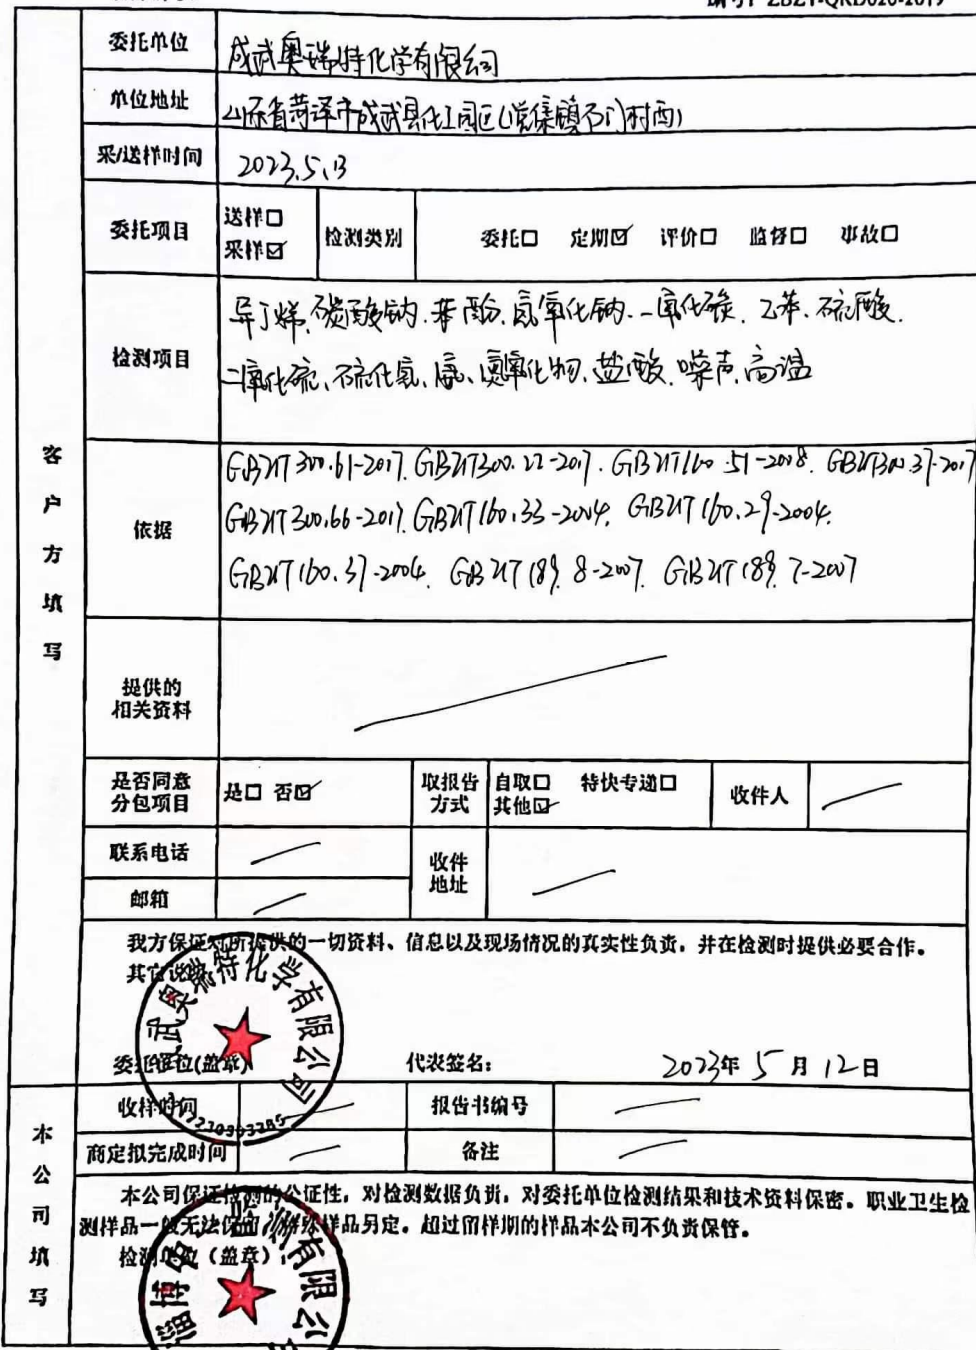 委托单位 成武奥瑞特化学有限公司
单位地址 山东省菏泽市成武县化工园区(党集镇石门村西)
采/送样时间 2023.5.13
委托项目 送样□ 采样☑ 检测类别 委托□ 定期☑ 评价□ 监督□ 事故□
检测项目
异丁烯、碳酸钠、苯酚、氢氧化钠、一氧化碳、乙苯、硫酸、
二氧化硫、硫化氢、氨、氮氧化物、盐酸、噪声、高温
依据
GBZ/T 300.61-2017、GBZ/T300.22-2017、GBZ/T160.51-2008、GBZ/T300.37-2017
GBZ/T300.66-2017、GBZ/T160.33-2004、GBZ/T160.29-2004、
GBZ/T160.37-2004、GBZ/T189.8-2007、GBZ/T189.7-2007
客户方填写
提供的
相关资料
是否同意
分包项目
是□ 否☑
取报告
方式
自取□ 特快专递□
其他☑
收件人
联系电话
收件
地址
邮箱
我方保证对所提供的一切资料、信息以及现场情况的真实性负责，并在检测时提供必要合作。
其它说明
成武奥瑞特化学有限公司
委托单位(盖章) 代表签名： 2023年 5 月 12 日
收样时间 报告书编号
商定拟完成时间 备注
本公司填写
本公司保证检测的公证性，对检测数据负责，对委托单位检测结果和技术资料保密。职业卫生检
测样品一般无法保留，特殊样品另定。超过留样期的样品本公司不负责保管。
检测单位（盖章）